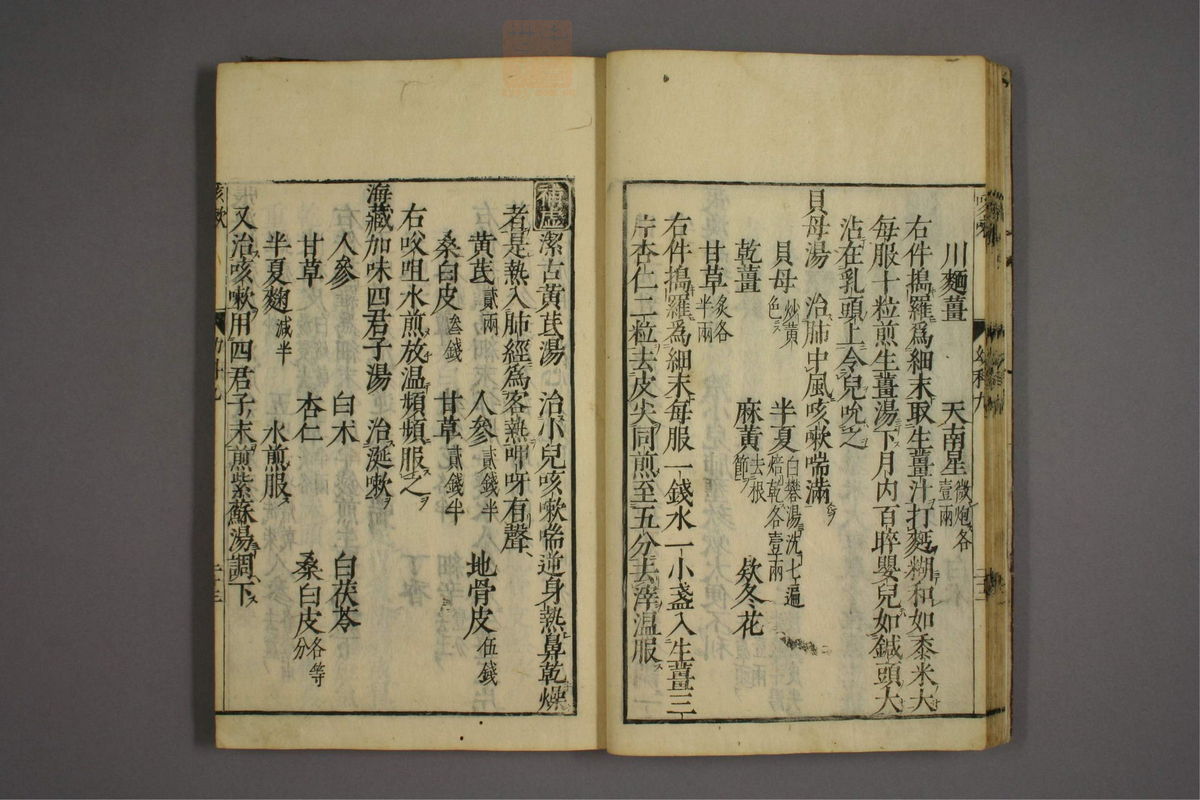 川麵薑　天南星微炮各壹兩
右件搗羅爲細末取生薑汁打麪糊和如黍米大
每服十粒煎生薑湯下月內百晬嬰兒如鍼頭大
沾在乳頭上令兒吮之
貝母湯　治肺中風咳嗽喘滿
貝母炒黃色　半夏白礬湯洗七遍焙乾各壹兩
乾薑　麻黃去根節　欸冬花
甘草炙各半兩
右件搗羅爲細末每服一錢水一小盞入生薑三
片杏仁二粒去皮尖同煎至五分去滓溫服
補虛　潔古黃芪湯　治小兒咳嗽喘逆身熱鼻乾燥
者是熱入肺經爲客熱呷呀有聲
黃芪貳兩　人參貳錢半　地骨皮伍錢
桑白皮叁錢　甘草貳錢半
右㕮咀水煎放温頻頻服之
海藏加味四君子湯　治涎嗽
人參　白朮　白茯苓
甘草　杏仁　桑白皮各等分
半夏麴減半　水煎服
又治咳嗽用四君子末煎紫蘇湯調下